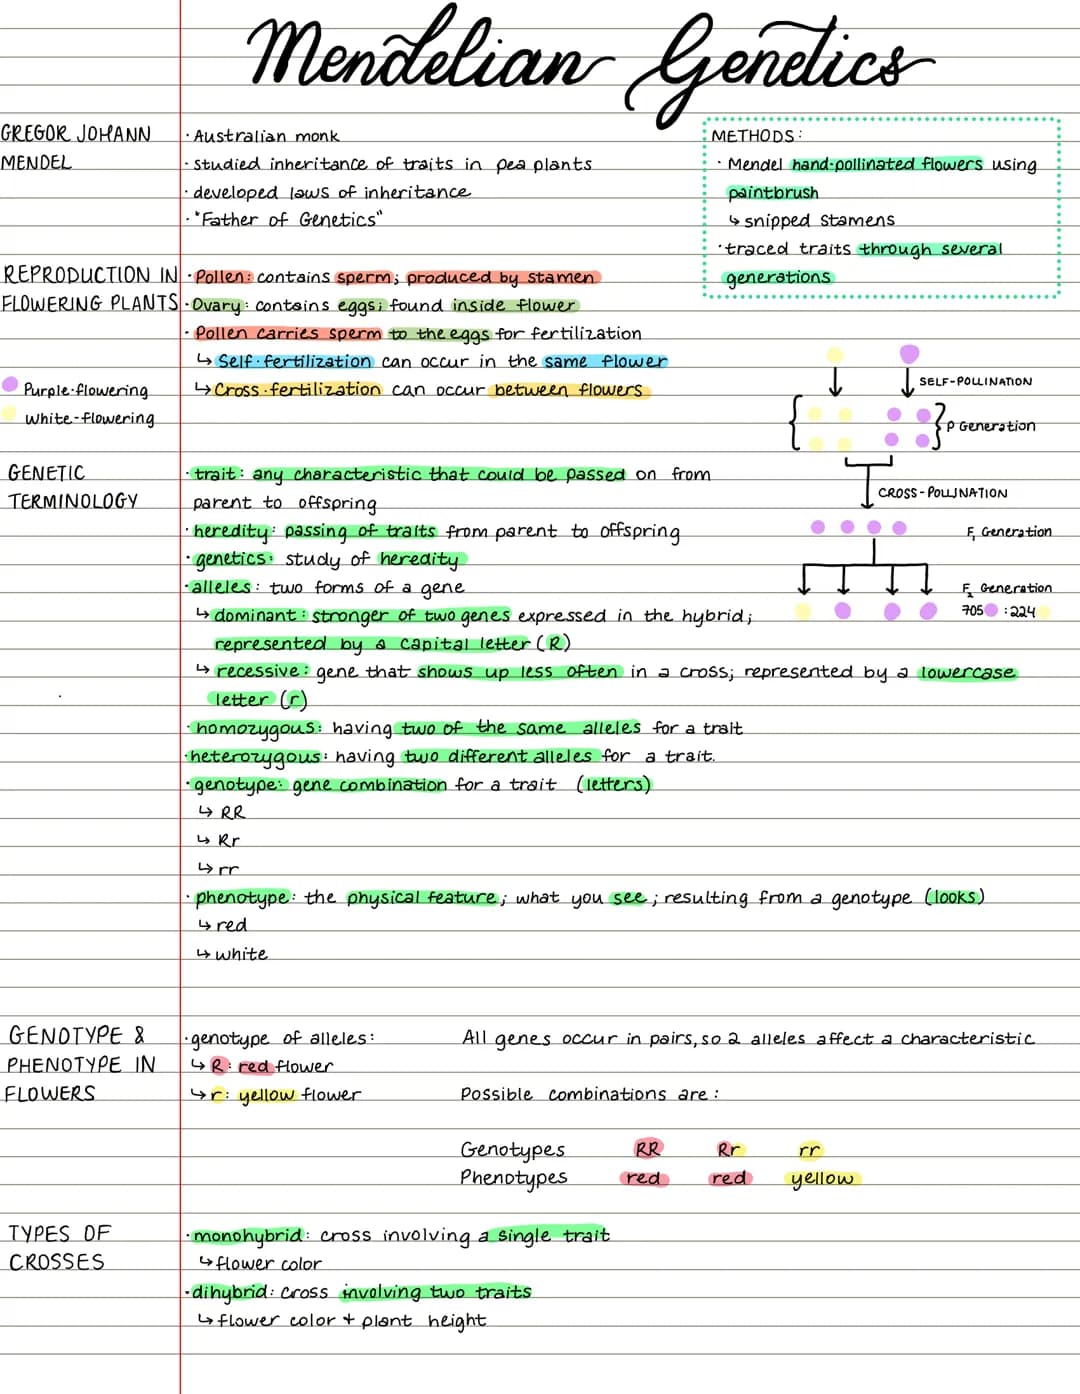 Mendelian Genetics
GREGOR JOHANN
MENDEL
· Australian monk
· studied inheritance of traits in pea plants
· developed laws of inheritance
· "Father of Genetics"
METHODS:
· Mendel hand-pollinated flowers using
paintbrush
↳ snipped stamens
· traced traits through several
generations
REPRODUCTION IN
FLOWERING PLANTS
· Pollen: contains sperm; produced by stamen
· Ovary: contains eggs; found inside flower
· Pollen carries sperm to the eggs for fertilization
↳ Self-fertilization can occur in the same flower
↳ Cross-fertilization can occur between flowers
Purple-flowering
White-flowering
SELF-POLLINATION
P Generation
CROSS-POLLINATION
F₁ Generation
F₂ Generation
705 : 224
GENETIC
TERMINOLOGY
· trait: any characteristic that could be passed on from
parent to offspring
· heredity: passing of traits from parent to offspring
· genetics: study of heredity
· alleles: two forms of a gene
↳ dominant: stronger of two genes expressed in the hybrid;
represented by a capital letter (R)
↳ recessive: gene that shows up less often in a cross; represented by a lowercase
letter (r)
· homozygous: having two of the same alleles for a trait
· heterozygous: having two different alleles for a trait.
· genotype: gene combination for a trait (letters)
↳ RR
↳ Rr
↳ rr
· phenotype: the physical feature; what you see; resulting from a genotype (looks)
↳ red
↳ white
GENOTYPE &
PHENOTYPE IN
FLOWERS
· genotype of alleles:
↳ R: red flower
↳ r: yellow flower
All genes occur in pairs, so 2 alleles affect a characteristic
Possible combinations are:
Genotypes RR Rr rr
Phenotypes red red yellow
TYPES OF
CROSSES
· monohybrid: cross involving a single trait
↳ flower color
· dihybrid: cross involving two traits
↳ flower color + plant height